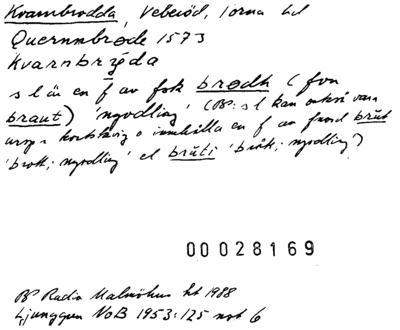 Kvarnbrodda, Veberöd, Torna hd
Quernnbrøde 1573
Kvarnbrýda
s l är en f av fsk brødh (fvn
braut) 'nyodling' (PP: s l kan också vara
urspr kortstavig o innehålla en f av fsnd brŭt
'brott; nyodling' el brŭti 'bråt; nyodling')
00028169
PP Radio Malmöhus ht 1988
Ljunggren NoB 1953:125 not 6